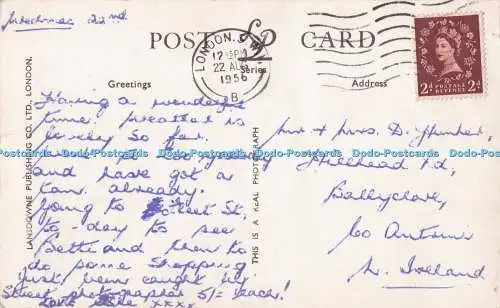 Wednesday 22nd
POST CARD
LONDON. S.W.1
12 15 PM
22 AUG
1956
B
LP
Series
Greetings
Address
Having a wonderful
time. Weather is
lovely so far.
and have got a
tan already.
Going to Street St.
to-day to see
Bette and then to
do some shopping
Just been caught by
Street photographer 5/= each!
Love xxxx
Mr + Mrs D. Hunter,
Hillhead Rd,
Ballyclare,
Co Antrim
N. Ireland
2D POSTAGE REVENUE 2D
LANSDOWNE PUBLISHING CO. LTD., LONDON.
THIS IS A REAL PHOTOGRAPH
Dodo-Postcards Dodo-Postcards Dodo-Postcards Dodo-Postcards Dodo-Postcards